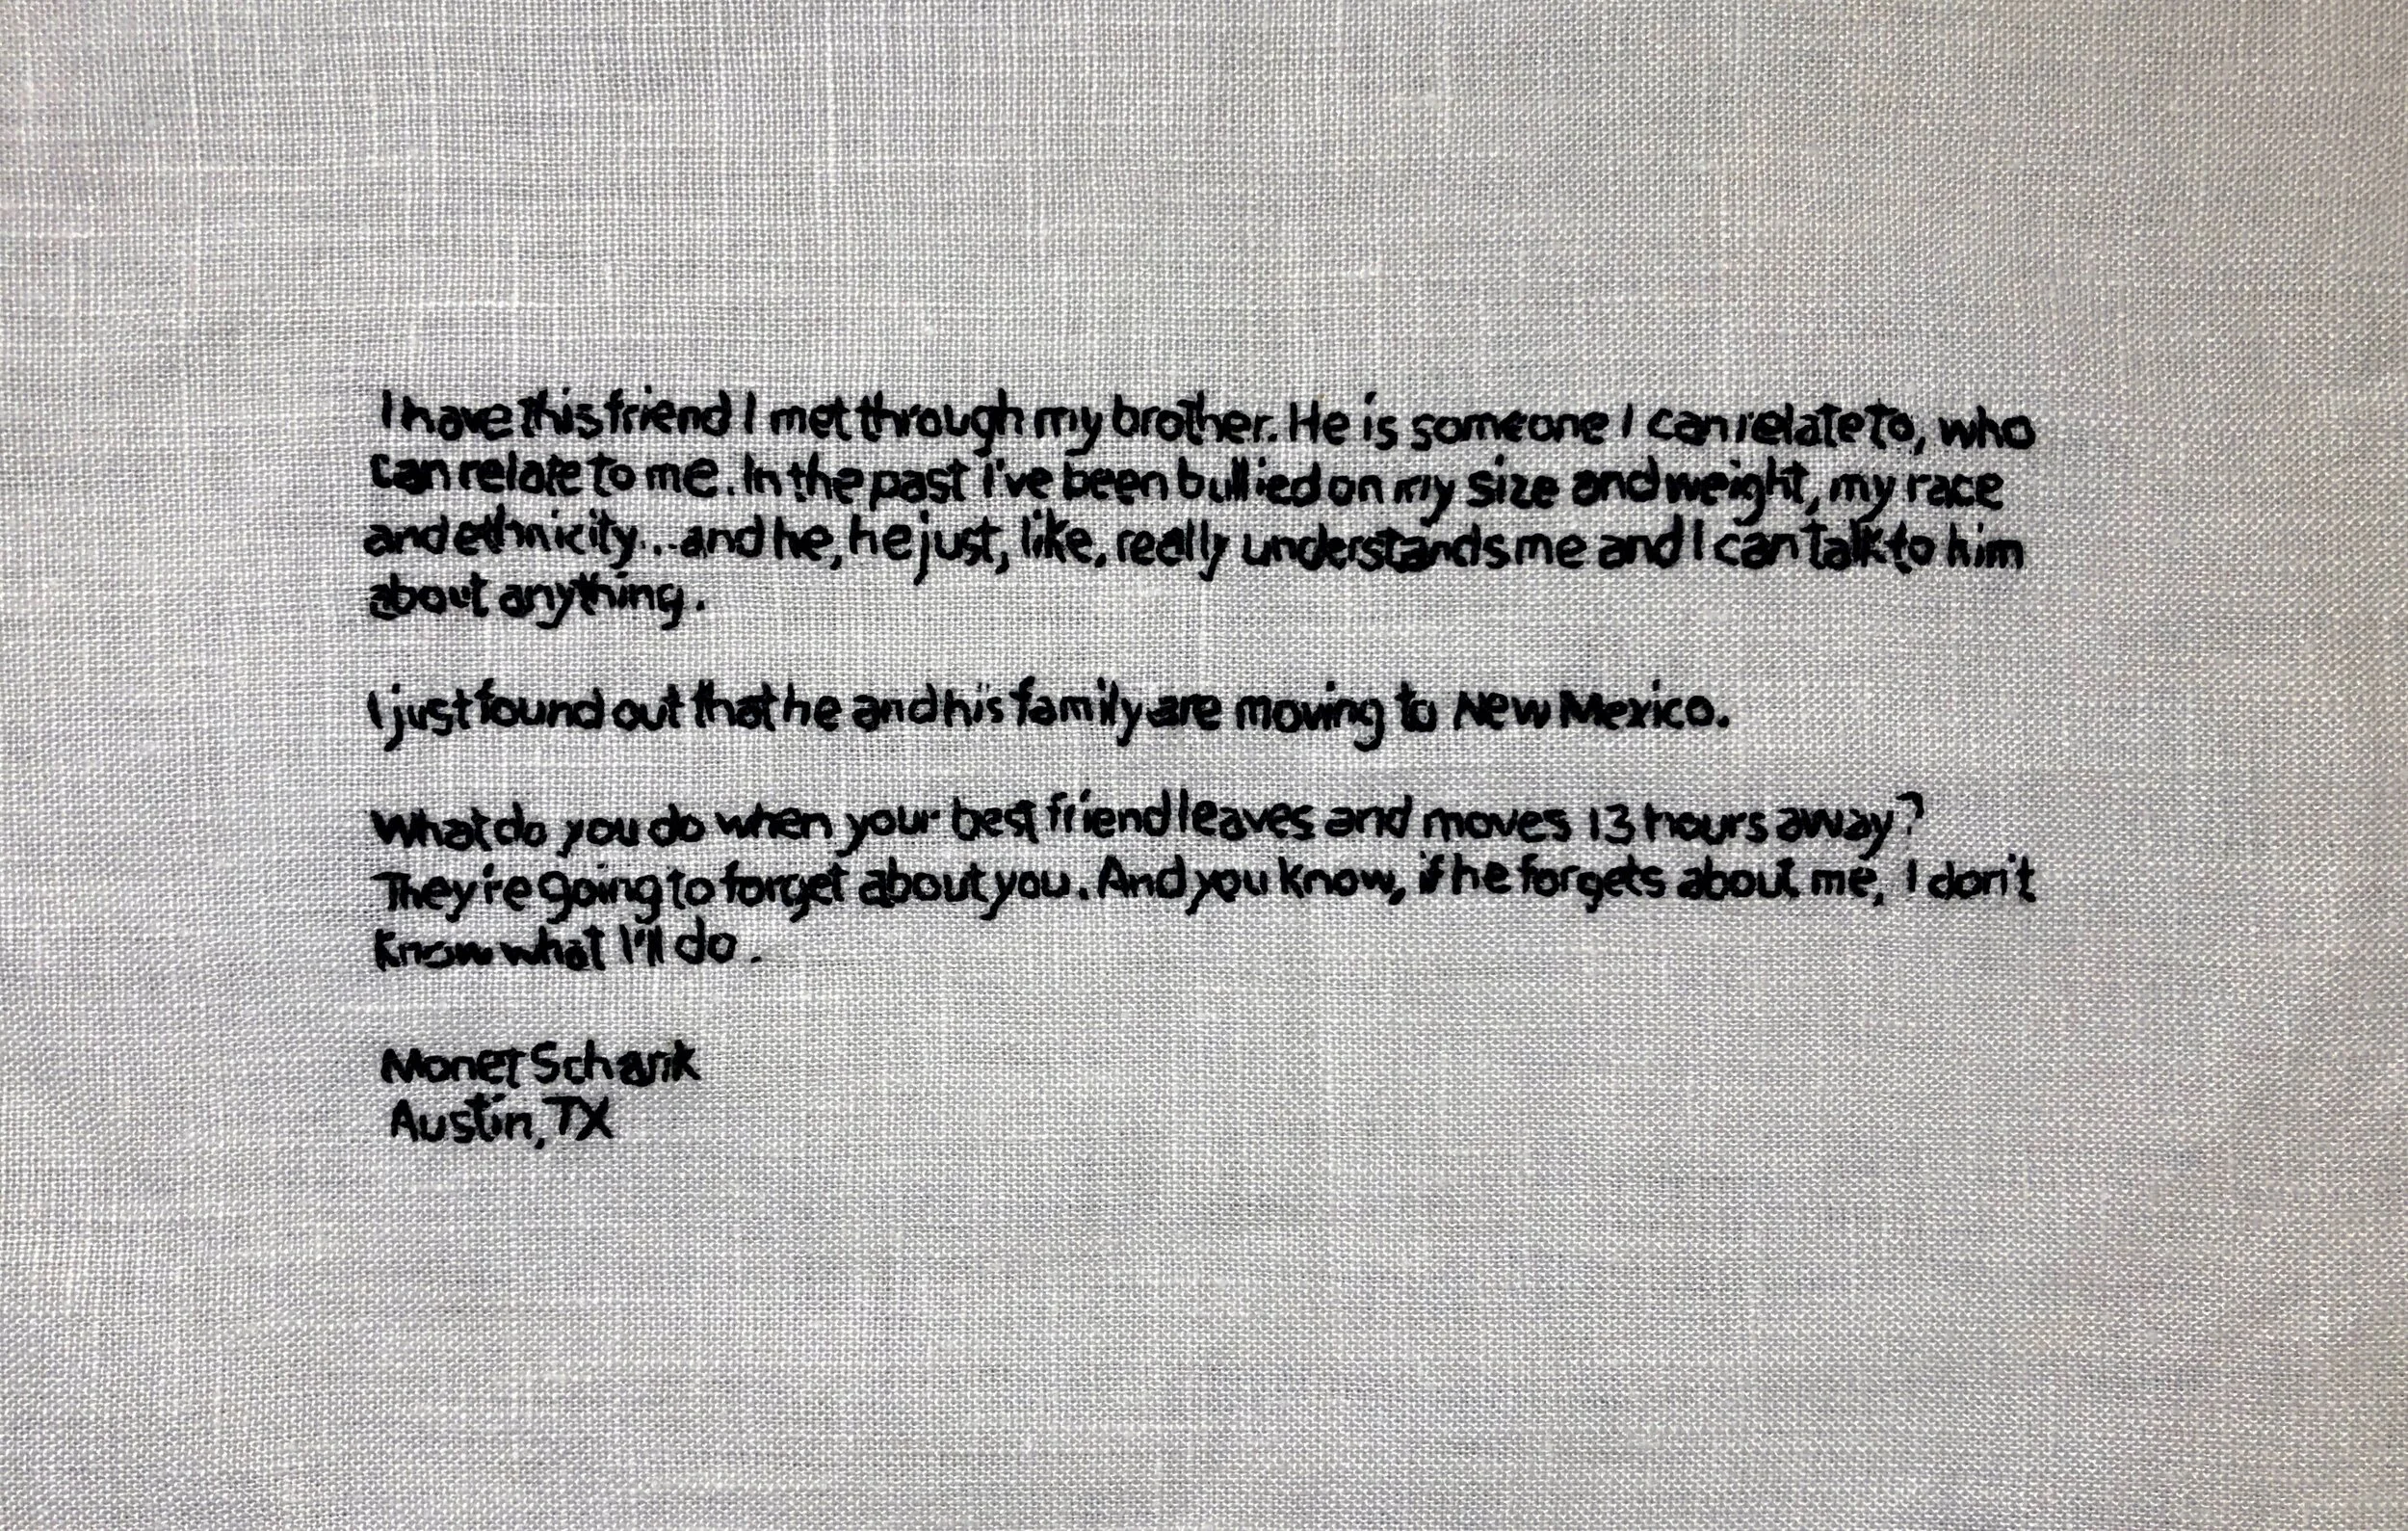 I have this friend I met through my brother. He is someone I can relate to, who
can relate to me. In the past I've been bullied on my size and weight, my race
and ethnicity...and he, he just, like, really understands me and I can talk to him
about anything.
I just found out that he and his family are moving to New Mexico.
What do you do when your best friend leaves and moves 13 hours away?
They're going to forget about you. And you know, if he forgets about me, I don't
know what I'll do.
Monet Schank
Austin, TX